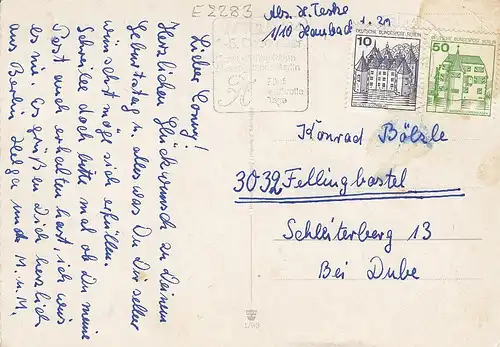 E2283
Abs. H. Teske
1/10 Hambach 1.29
10
DEUTSCHE BUNDESPOST BERLIN
50
DEUTSCHE BUNDESPOST BERLIN
Lieber Conny!
Herzlichen Glückwunsch zu Deinem
Geburtstag u. alles was Du Dir selber
wünschst möge sich erfüllen.
Schreibe doch bitte mal ob Du meine
Post auch erhalten hast, ich weis
es nie. Es grüßen Dich herzlich
aus Berlin Helga und M. u. M.
Konrad Bölzle
3032 Fellingbostel
Schleiterberg 13
Bei Dube
1/93